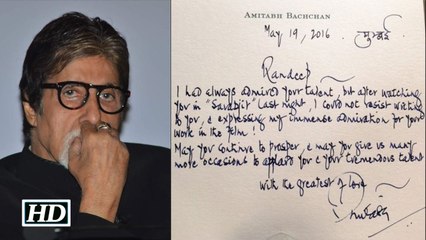 AMITABH BACHCHAN
May 19, 2016 मुंबई
Randeep
I had always admired your talent, but after watching
you in "Sarabjit" last night, I could not resist writing
to you, & expressing my immense admiration for your
work in the film.
May you continue to prosper, & may you give us many
more occasions to applaud you & your tremendous talent
with the greatest of love
HD